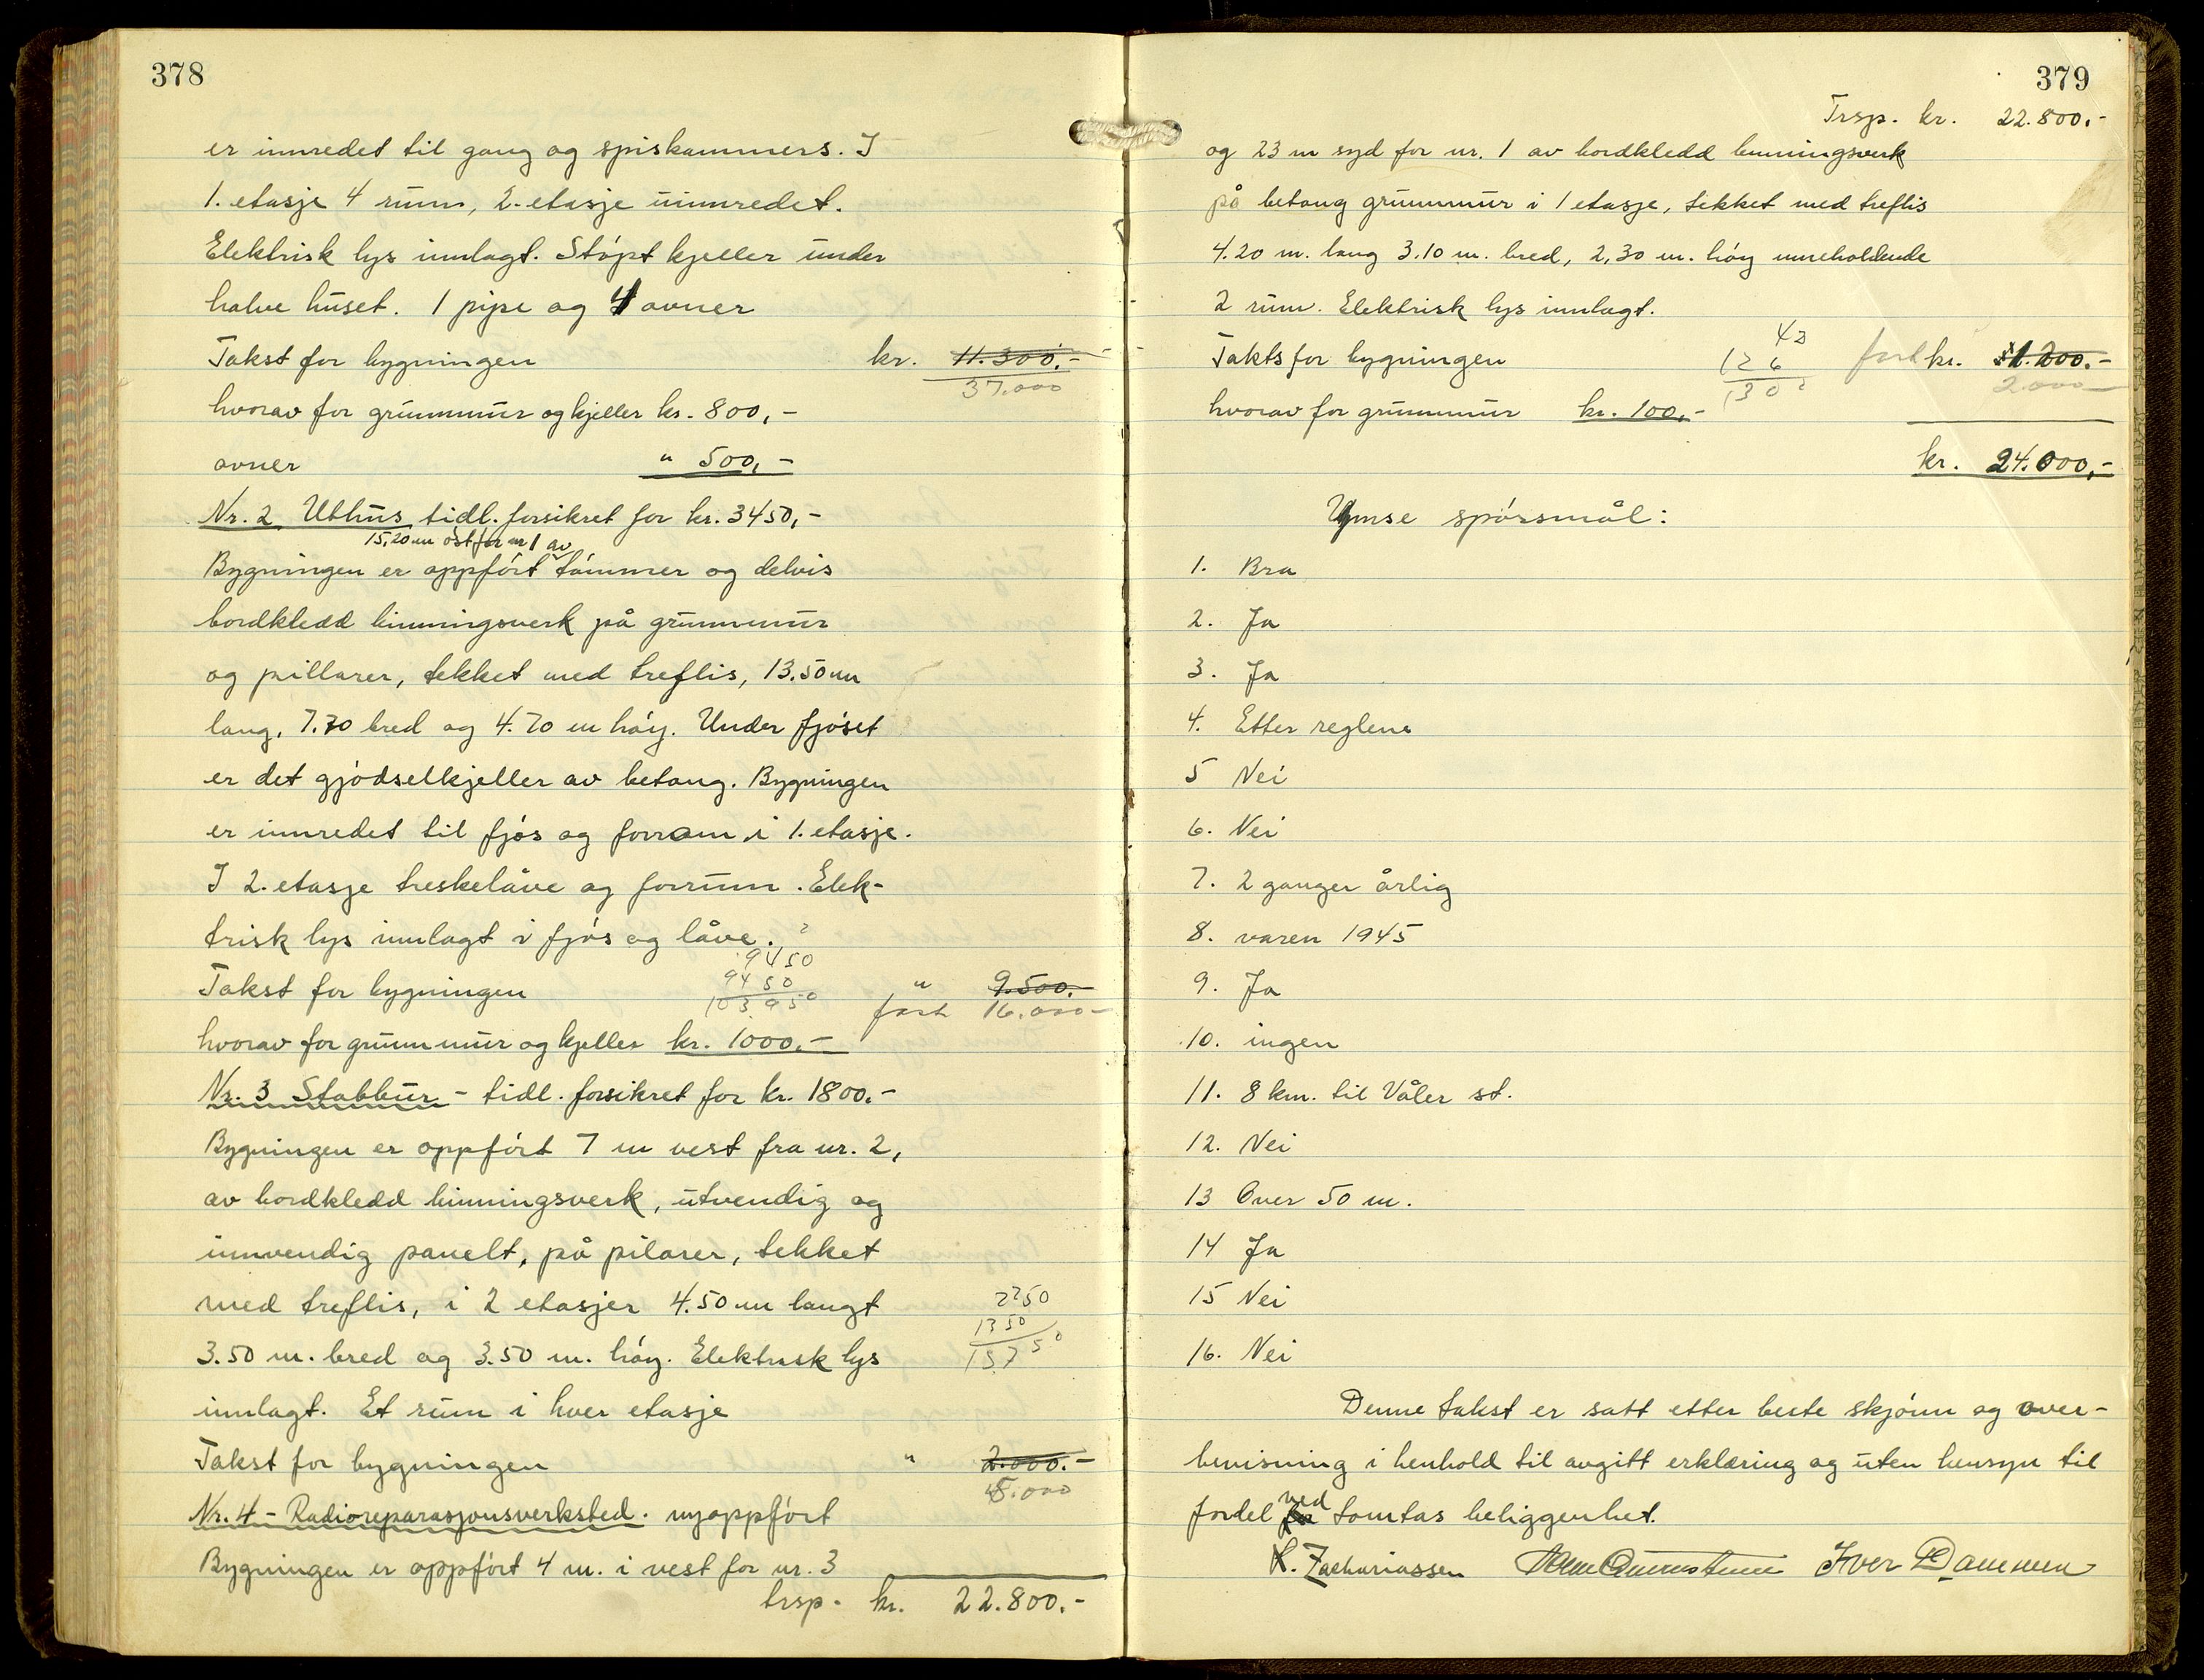 378
er innredet til gang og spiskammers. I
1. etasje 4 rum, 2. etasje uinnredet.
Elektrisk lys innlagt. Støpt kjeller under
halve huset. 1 pipe og 4 ovner
Takst for bygningen kr. 11.300.-
37.000
hvorav for grunnmur og kjeller kr. 800,-
ovner " 500,-
Nr. 2 Uthus tidl. forsikret for kr. 3450,-
15,20 m øst for nr 1 av
Bygningen er oppført tømmer og delvis
bordkledd binningsverk på grunnmur
og pillarer, tekket med treflis, 13.50 m
lang, 7.70 bred og 4.70 m høy. Under fjøset
er det gjødselkjeller av betong. Bygningen
er innredet til fjøs og forrom i 1. etasje.
I 2. etasje treskelåve og forrum. Elek-
trisk lys innlagt i fjøs og låve.
9450
9450
103950
Takst for bygningen " 9.500.-
fort 16.000-
hvorav for grunnmur og kjeller kr. 1000.-
Nr. 3 Stabbur - tidl. forsikret for kr. 1800.-
Bygningen er oppført 7 m vest fra nr. 2,
av bordkledd binningsverk, utvendig og
innvendig panelt, på pilarer, tekket
med treflis, i 2 etasjer 4.50 m langt
2250
1350
15750
3.50 m. bred og 3.50 m. høy. Elektrisk lys
innlagt. Et rum i hver etasje
Takst for bygningen " 2.000.-
5.000
Nr. 4 - Radioreparasjonsverksted. nyoppført
Bygningen er oppført 4 m. i vest for nr. 3
trsp. kr. 22.800.-
379
Trsp. kr. 22.800.-
og 23 m syd for nr. 1 av bordkledd binningsverk
på betong grunnmur i 1 etasje, tekket med treflis
4.20 m. lang 3.10 m. bred, 2,30 m. høy inneholdende
2 rum. Elektrisk lys innlagt.
42
126
1302
Takts for bygningen fort kr. 1.200.-
2.000-
hvorav for grunnmur kr. 100,-
kr. 24.000,-
Ymse spørsmål:
1. Bra
2. Ja
3. Ja
4. Etter reglene
5 Nei
6. Nei
7. 2 ganger årlig
8. varen 1945
9. Ja
10. ingen
11. 8 km. til Våler st.
12. Nei
13 Over 50 m.
14 Ja
15 Nei
16. Nei
Denne takst er satt etter beste skjønn og over-
bevisning i henhold til avgitt erklæring og uten hensyn til
fordel ved tomtas beliggenhet.
K. Zachariassen Iver Dammen